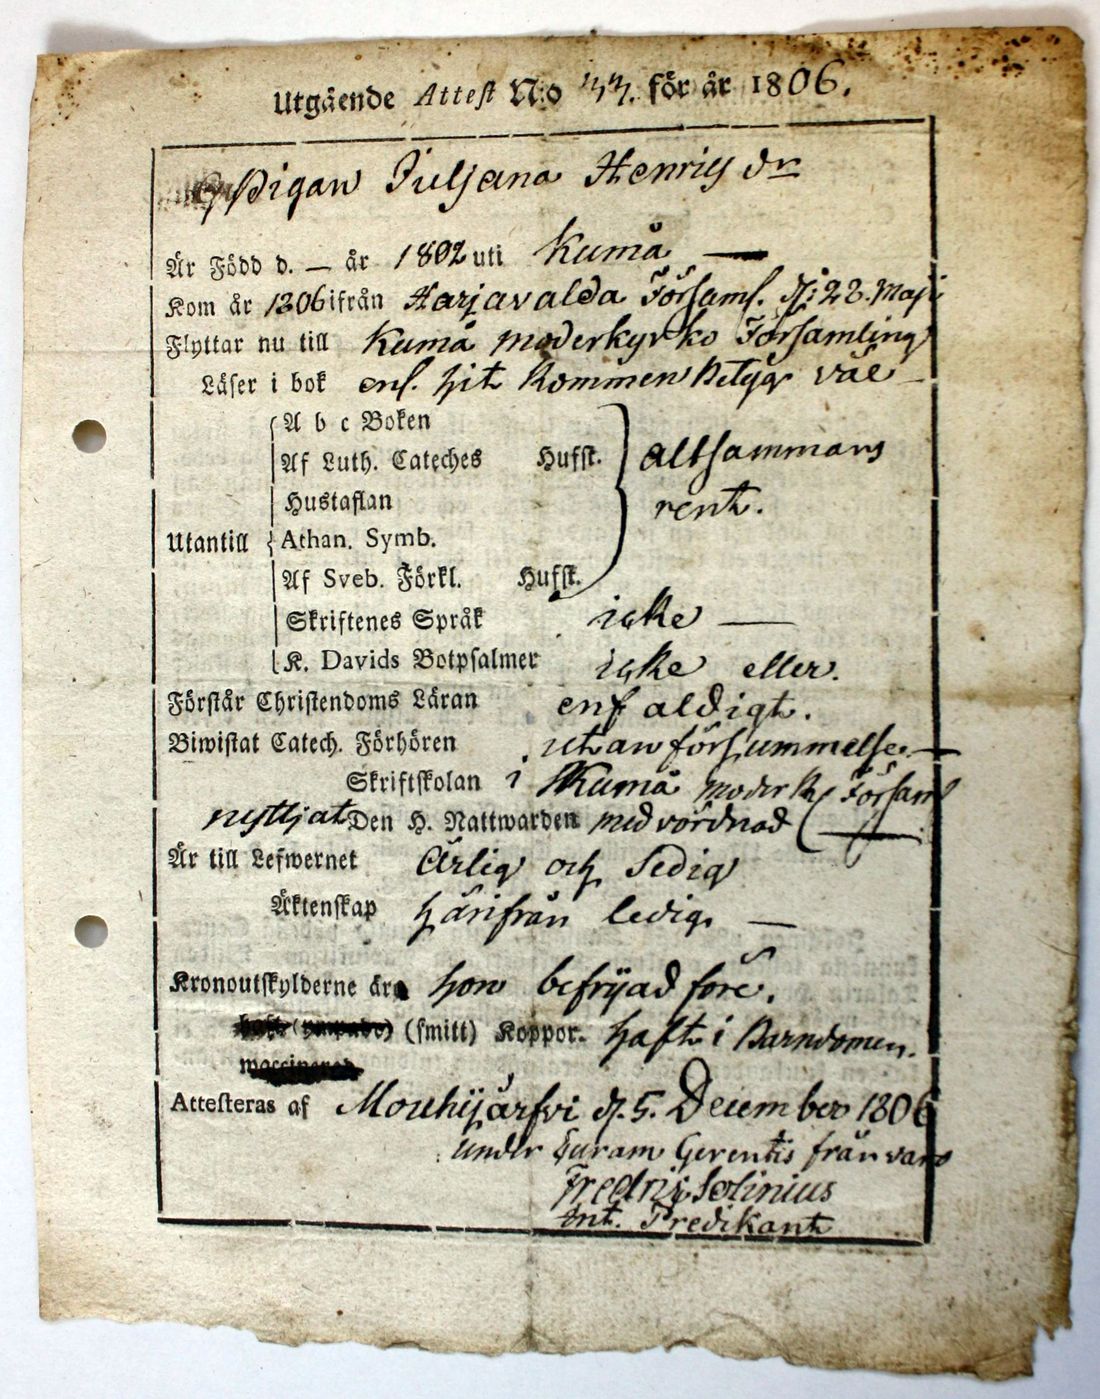 Utgående Attest N:o 33. för år 1806.
Pigan Juljana Henrics dr
Är Född d. — år 1802 uti Kumå —
Kom år 1806 ifrån Harjavalda Församl. d: 28. Maji
Flyttar nu till Kumå moderkyrko Församling
Läser i bok enl. hit kommen Betyg väl
A b c Boken
Af Luth. Cateches Hufst. altsammans
Hustaflan rent.
Utantill Athan. Symb.
Af Sveb. Förkl. Hufst.
Skriftenes Språk icke —
K. Davids Botpsalmer icke eller.
Förstår Christendoms Läran enfaldigt.
Biwistat Catech. Förhören utan försummelse. —
Skriftskolan i Kumå moderk. Församl
nyttjat Den H. Nattwarden med vördnad
Är till Lefwernet Ärlig och Sedig
Äktenskap härifrån ledig. —
Kronoutskylderne är hon befrijad före.
(smitt) Koppor. haft i Barndomen.
Attesteras af Mouhijärfvi d. 5. December 1806
under Curam Gerentis frånvaro
Fredric Solinius
Ent. Predikant